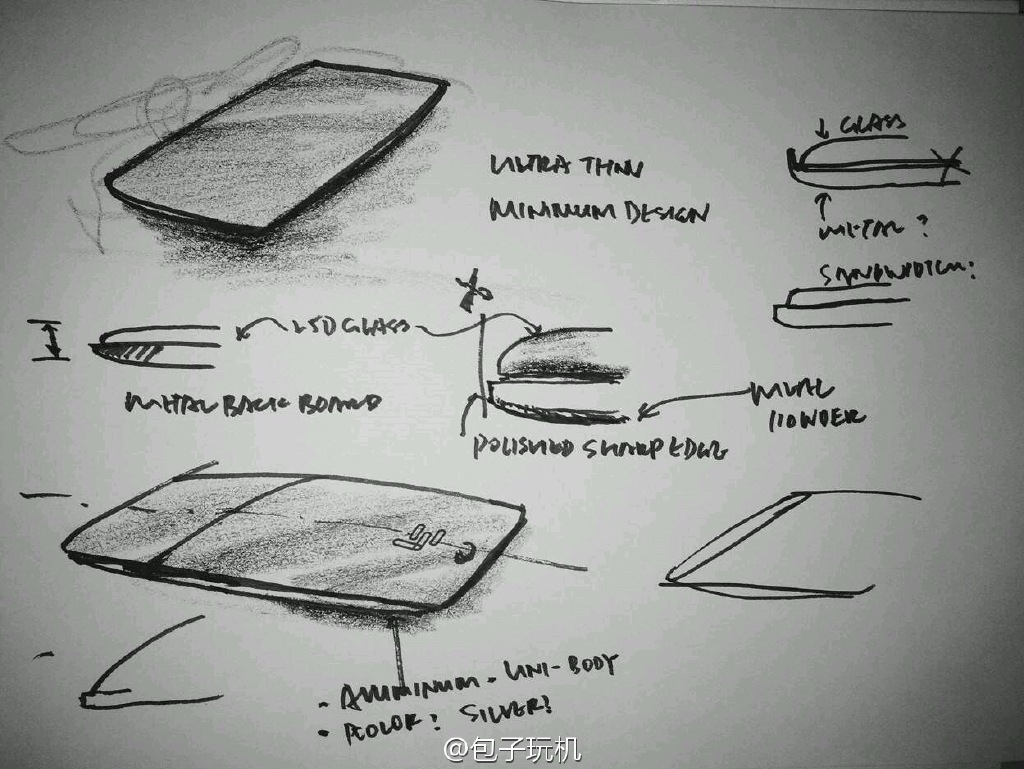 ULTRA THIN
MINIMUM DESIGN
GLASS
METAL?
SANDWITCH?
2.5D GLASS
METAL BACK BOARD
METAL
POLISHED SHARP EDGE
- ALUMINUM - UNI-BODY
- COLOR? SILVER?
@包子玩机